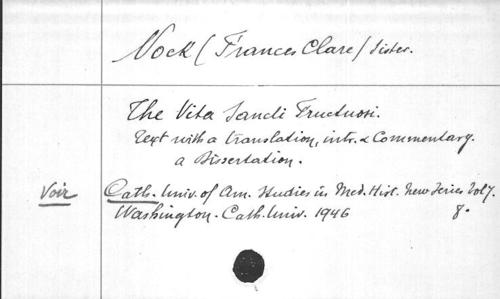 Nock (Frances Clare) Sister.
The Vita Sancti Fructuosi.
Text with a translation, intr. & Commentary.
a Dissertation.
Voir Cath. Univ. of Am. Studies in Med. Hist. New Series Vol 7.
Washington. Cath. Univ. 1946 8.